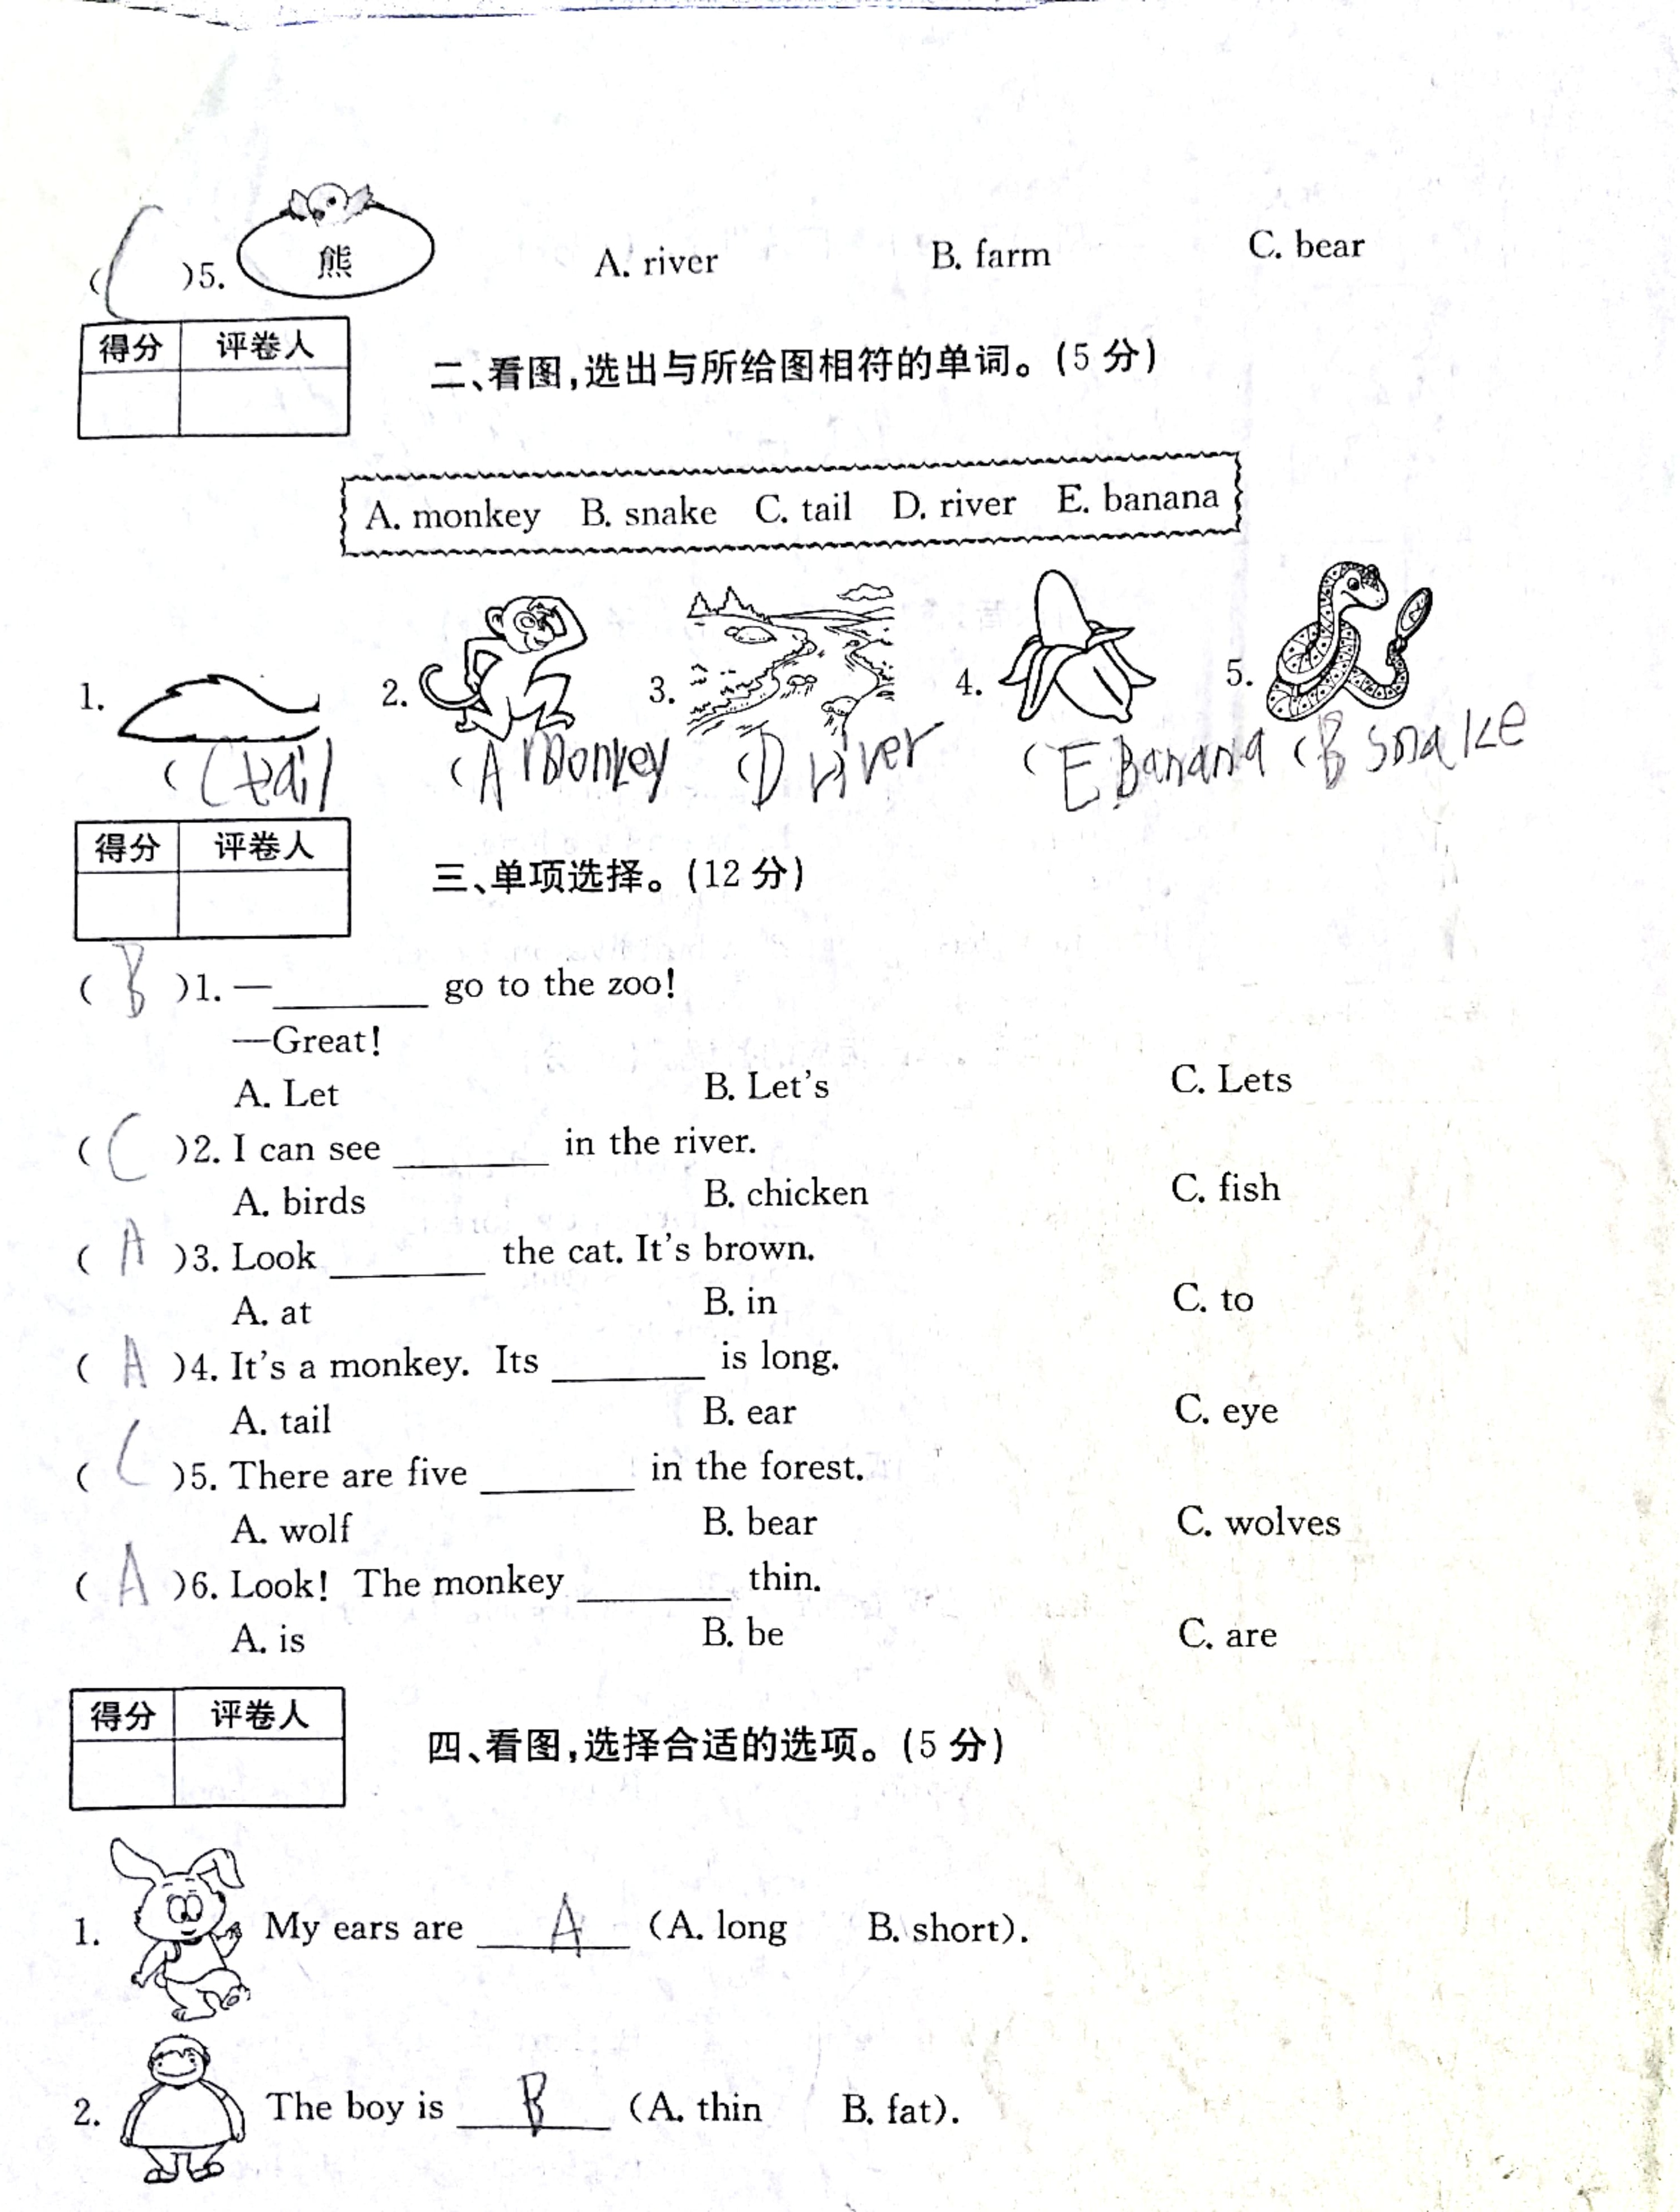 ( C )5. 熊 A. river B. farm C. bear
得分 评卷人
二、看图,选出与所给图相符的单词。(5 分)
A. monkey B. snake C. tail D. river E. banana
1. 2. 3. 4. 5.
( C tail ( A monkey ( D river ( E Banana ( B snake
得分 评卷人
三、单项选择。(12 分)
( B )1. —________ go to the zoo!
—Great!
A. Let B. Let's C. Lets
( C )2. I can see ________ in the river.
A. birds B. chicken C. fish
( A )3. Look ________ the cat. It's brown.
A. at B. in C. to
( A )4. It's a monkey. Its ________ is long.
A. tail B. ear C. eye
( C )5. There are five ________ in the forest.
A. wolf B. bear C. wolves
( A )6. Look! The monkey ________ thin.
A. is B. be C. are
得分 评卷人
四、看图,选择合适的选项。(5 分)
1. My ears are A (A. long B. short).
2. The boy is B (A. thin B. fat).